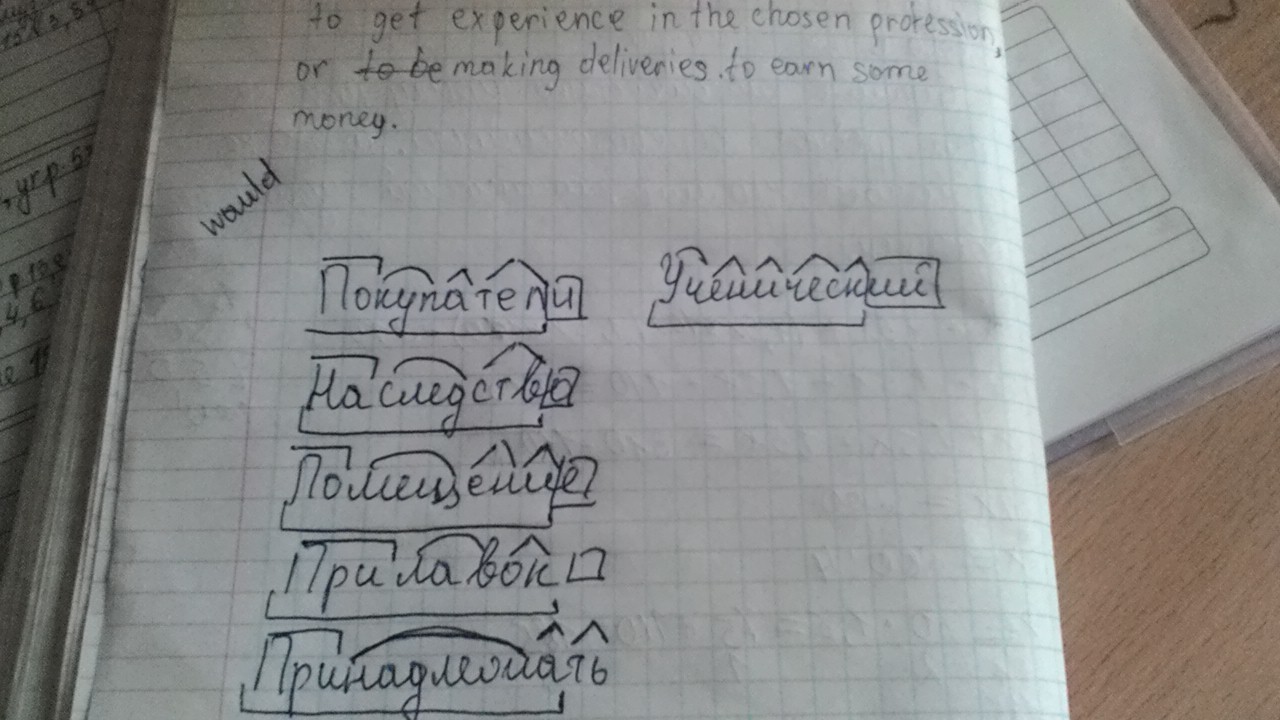 to get experience in the chosen profession,
or to be making deliveries to earn some
money.
would
Покупатели Ученический
Наследство
Помещение
Прилавок
Принадлежать